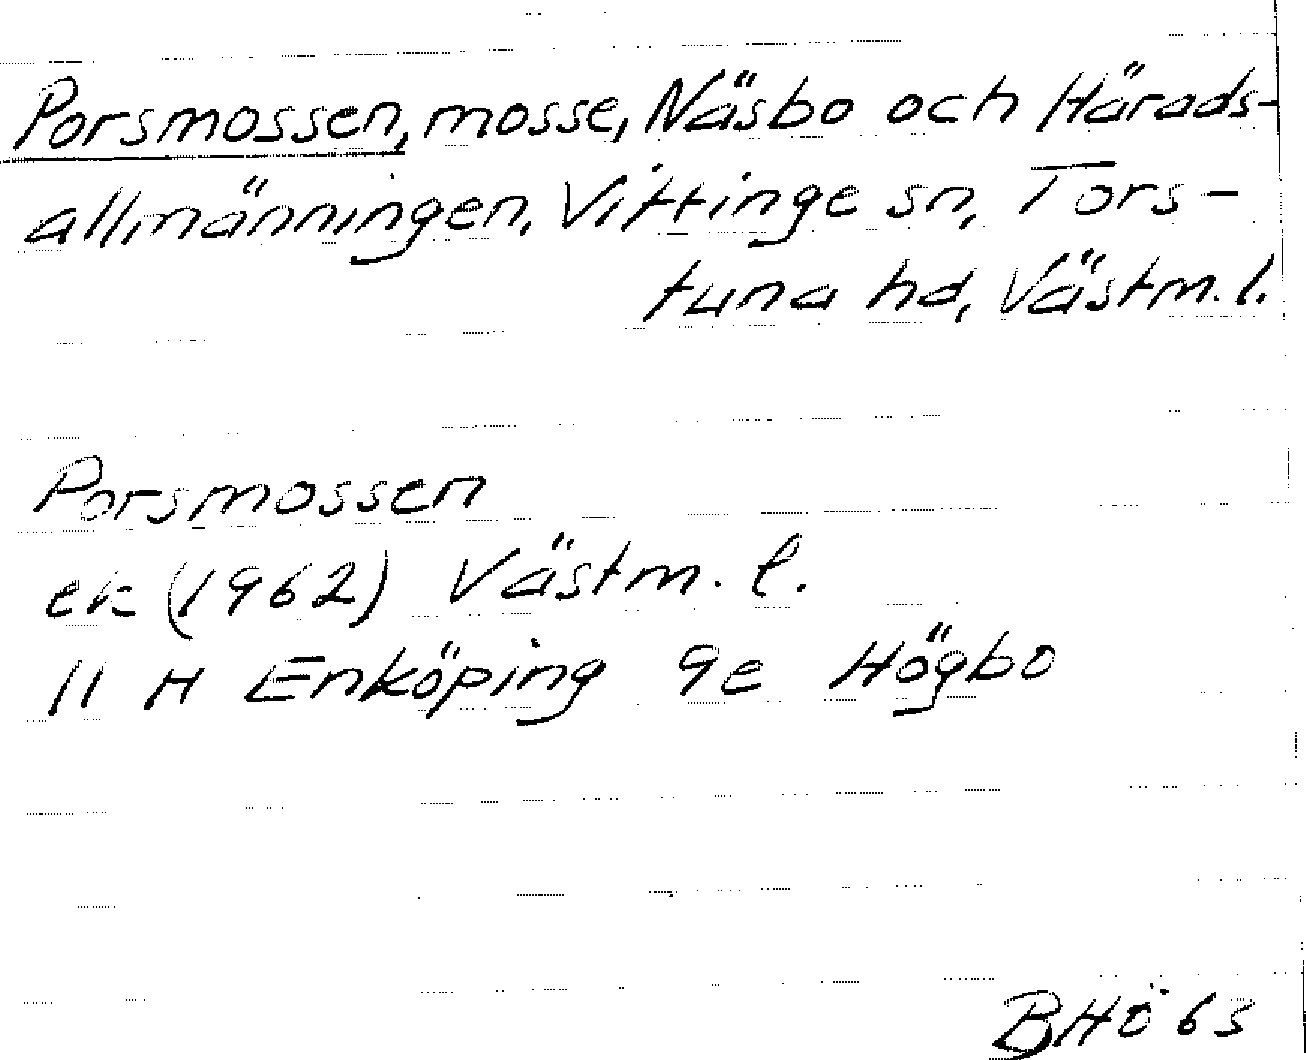 Porsmossen, mosse, Näsbo och Härads-
allmänningen, Vittinge sn, Tors-
tuna hd, Västm. l.
Porsmossen
ek (1962) Västm. l.
11 H Enköping 9e Högbo
BHÖ 63